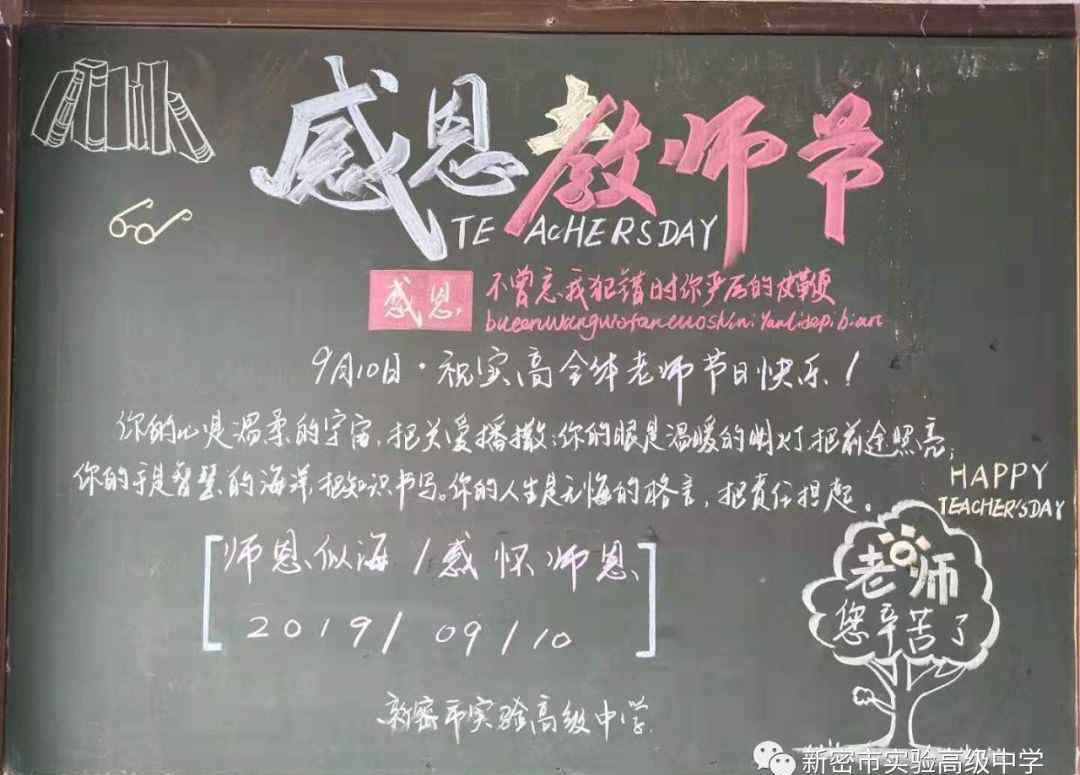 感恩教师节
TEACHERSDAY
感恩
不曾忘我犯错时你严厉的皮鞭
9月10日·祝实高全体老师节日快乐!
你的心是温柔的宇宙,把关爱播撒;你的眼是温暖的明灯把前途照亮;
你的手是智慧的海洋,把知识书写。你的人生是无悔的格言,把责任担起。
HAPPY
TEACHER'SDAY
[师恩似海/感怀师恩]
2019/09/10
老师
您辛苦了
新密市实验高级中学
新密市实验高级中学